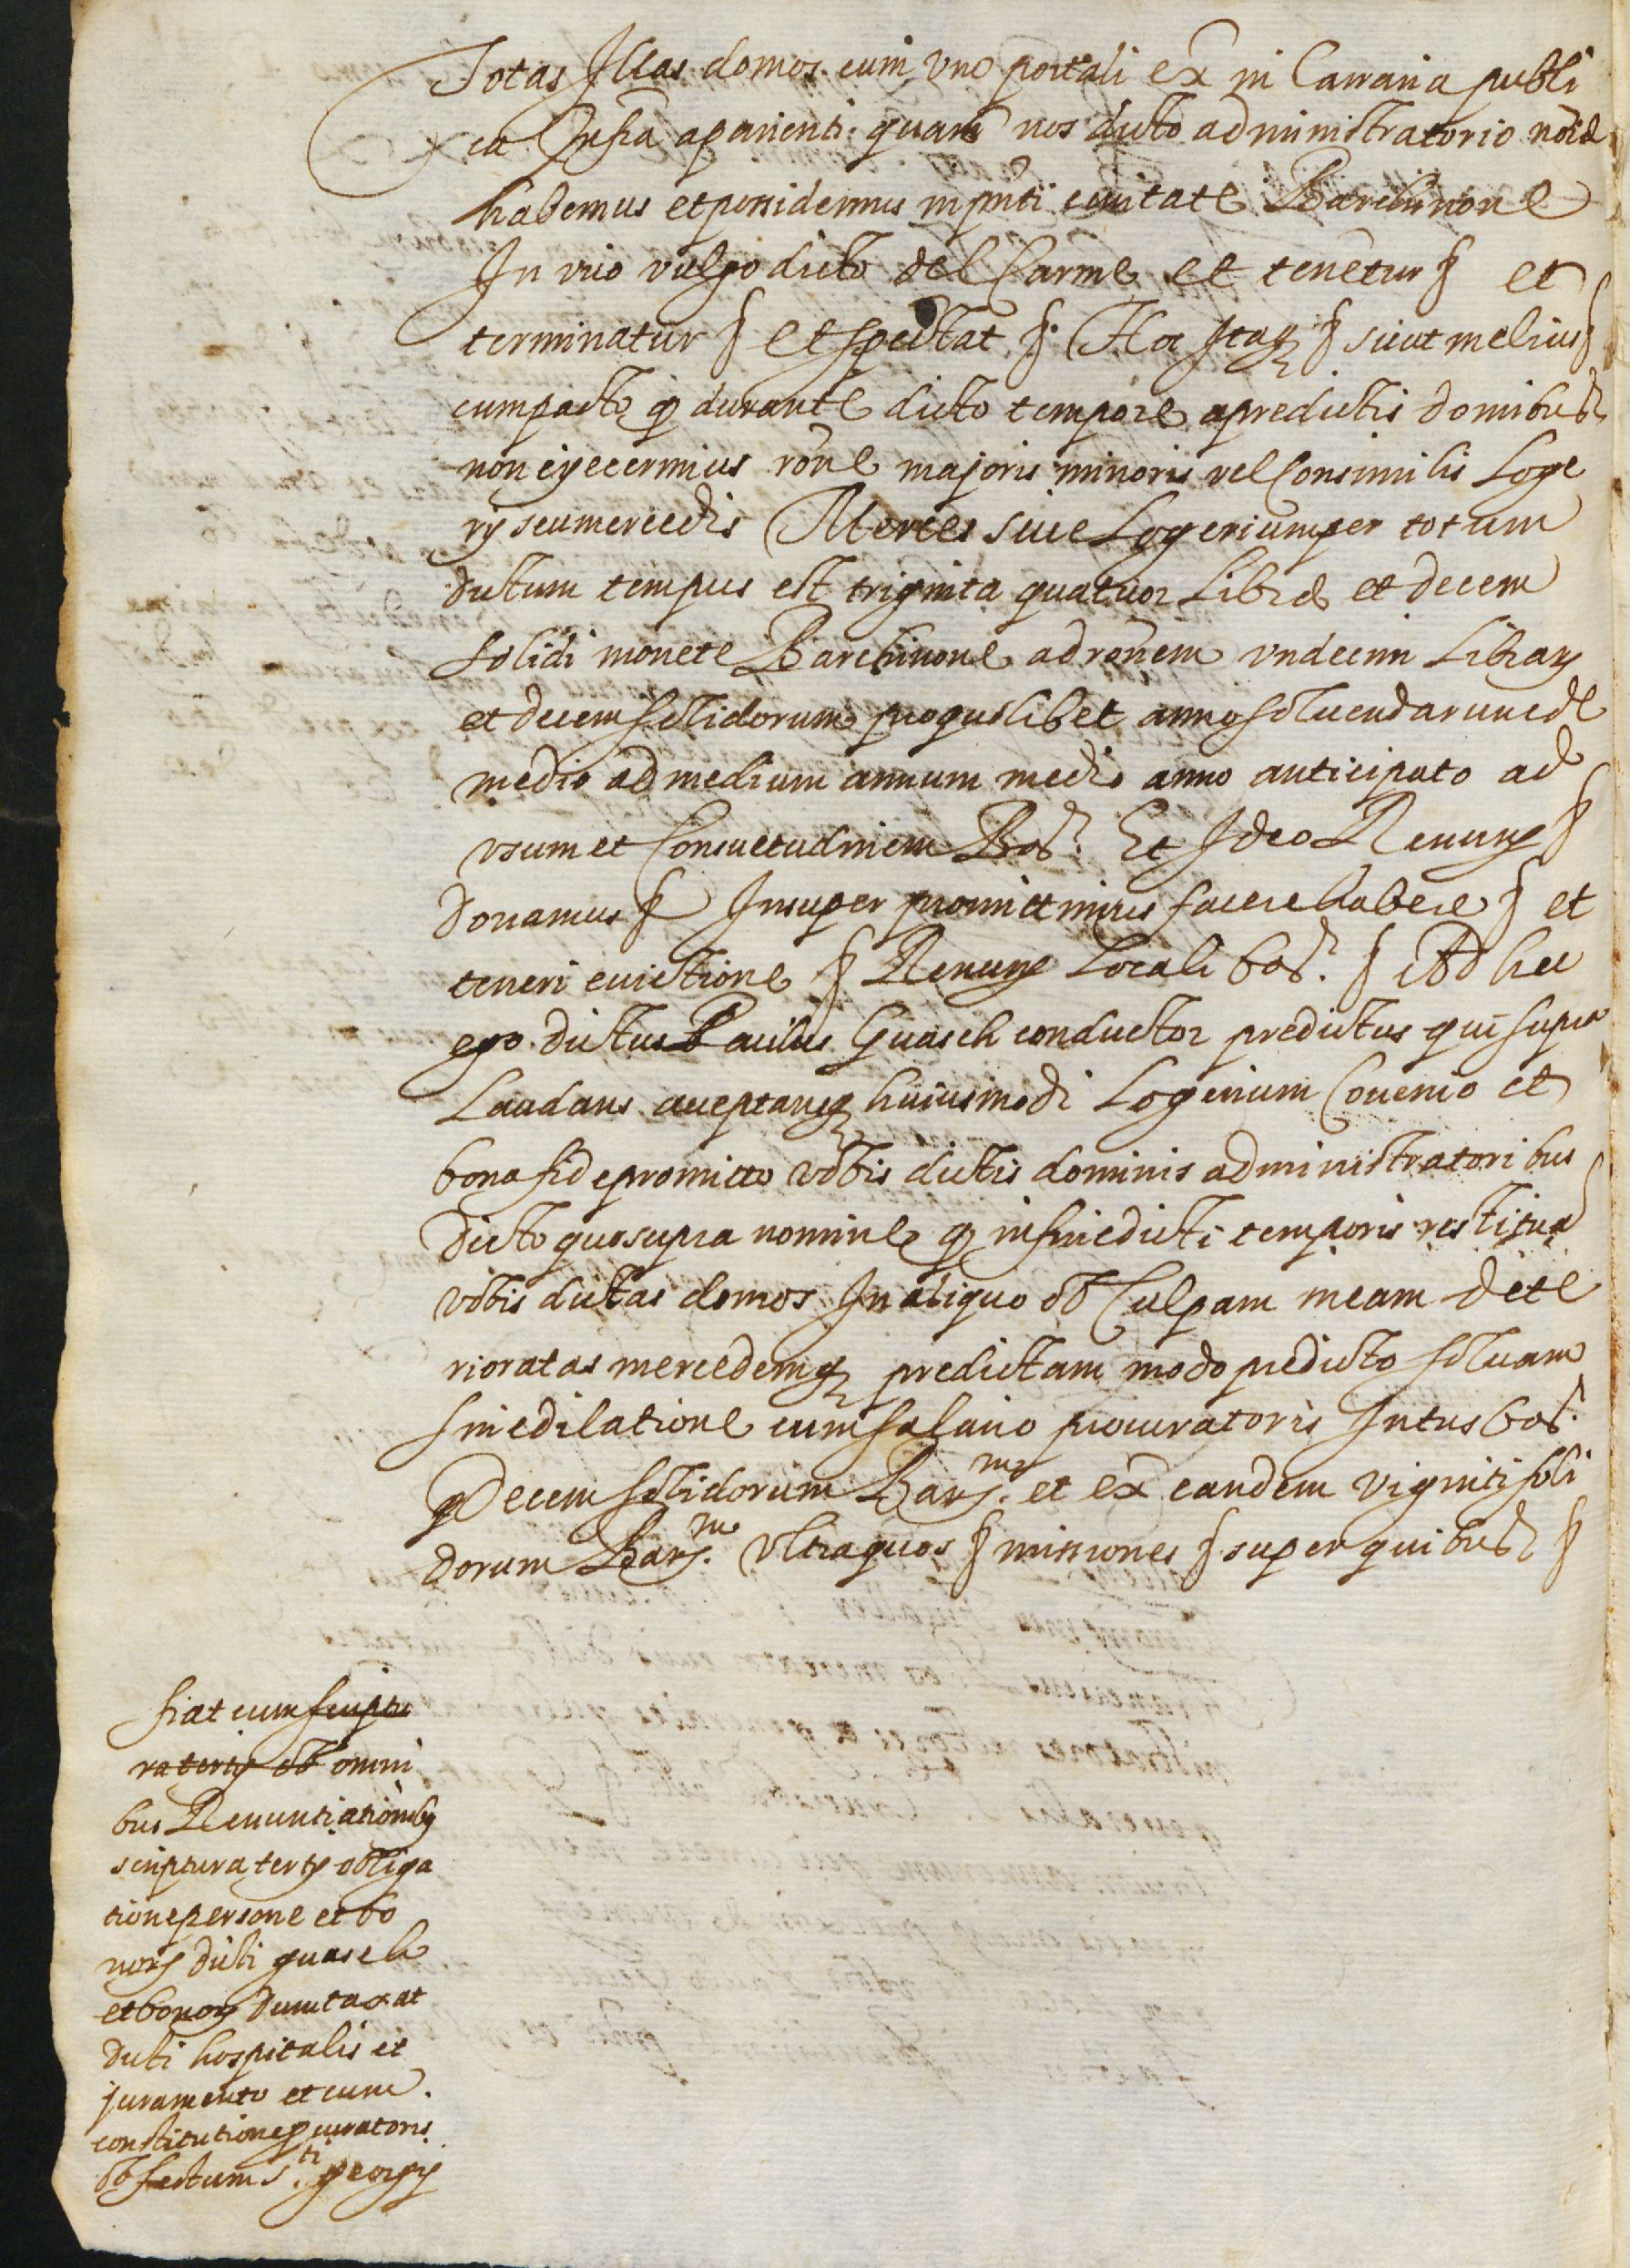 Totas Illas domos cum vno portali ex in Carraria publi
ca Infra aparienti quam nos dicto administratorio nõie
habemus et possidemus in pñti ciuitate Barchinone
In vico vulgo dicto del Carme et tenetur § et
terminatur § et spectat § Hoc Itaq § sicut melius §
cum pacto q durante dicto tempore a predictis domibus
non eijecermius rõne majoris minoris vel Consimilis Loge
rij seu mercedis Merces siue Logerium per totum
dictum tempus est triginta quatuor Libre et decem
solidi monete Barchinone ad rõnem vndecim Librarς
et decem solidorum pro quolibet anno soluendarum de
medio ad medium annum medio anno anticipato ad
vsum et Consuetudinem Bar. Et Ideo Renunς §
donamus § Insuper promittimus facere habere § et
teneri euictione § Renunς Locali bar. § Ad hec
ego dictus Paulus Guasch conductor predictus qui supra
Laudans acceptansq huiusmodi Logerium Conuenio et
bona fide promitto vobis dictis dominis administratoribus
dicto quo supra nomine q in fine dicti temporis restituã
vobis dictas domos In aliquo ob Culpam meam dete
rioratas mercedemq predictam modo predicto soluam
sine dilatione cum salario procuratoris Intus bar.
q Decem solidorum Barς.m et ex eandem viginti soli
dorum Barς.m vltra quos § missiones § super quibus §
fiat cum scriptu
ra tertij ob omni
bus Renuntiationibς
scriptura tertij obliga
tione persone et bo
norς dicti guasch
et bonorς dumtaxat
dicti hospitalis et
juramento et cum
constitutione pcuratoris
ob festum s.ti georgij